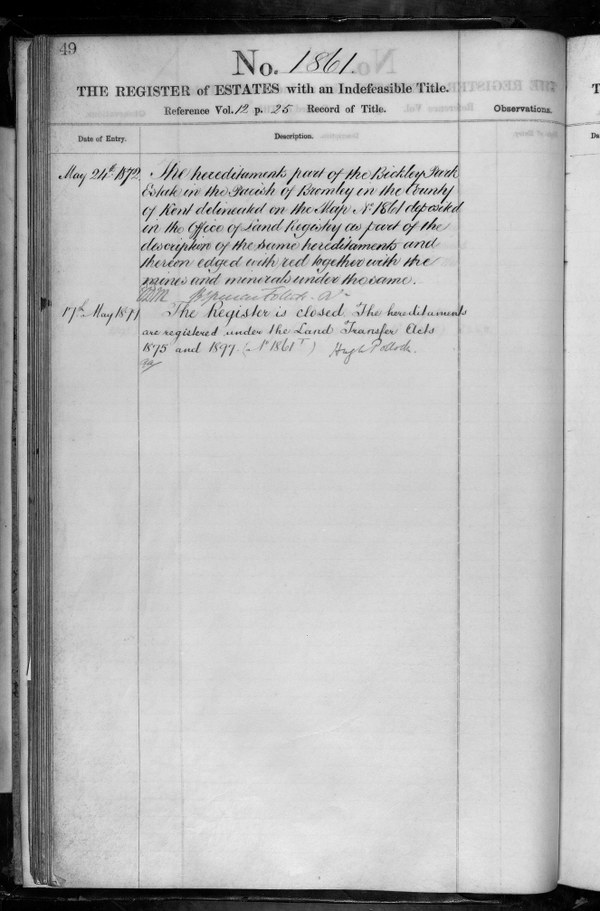 49
No. 1861.
THE REGISTER of ESTATES with an Indefeasible Title.
Reference Vol. 12 p. 25 Record of Title.
Observations.
Date of Entry.
Description.
May 24th 1872 The hereditaments part of the Bickley Park
Estate in the Parish of Bromley in the County
of Kent delineated on the Map No 1861 deposited
in the Office of Land Registry as part of the
description of the same hereditaments and
thereon edged with red together with the
mines and minerals under the same.
17th May 1899 The Register is closed. The hereditaments
are registered under the Land Transfer Acts
1875 and 1897 (No 1861T) Hugh Pollock.